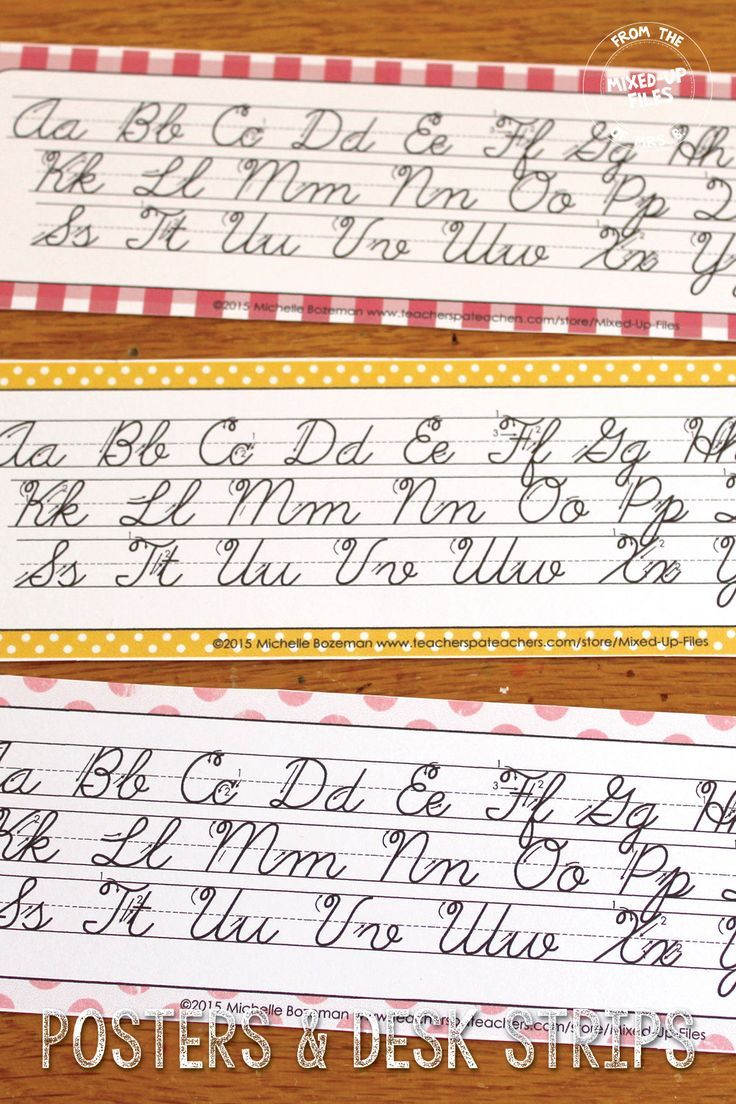 FROM THE
MIXED-UP
FILES
OF MRS. B.
Aa Bb Cc Dd Ee Ff Gg Hh
Kk Ll Mm Nn Oo Pp Q
Ss Tt Uu Vv Ww Xx Y
©2015 Michelle Bozeman www.teacherspateachers.com/store/Mixed-Up-Files
Aa Bb Cc Dd Ee Ff Gg Hh
Kk Ll Mm Nn Oo Pp
Ss Tt Uu Vv Ww Xx Y
©2015 Michelle Bozeman www.teacherspateachers.com/store/Mixed-Up-Files
a Bb Cc Dd Ee Ff Gg H
Kk Ll Mm Nn Oo Pp
Ss Tt Uu Vv Ww Xx
©2015 Michelle Bozeman www.teacherspateachers.com/store/Mixed-Up-Files
POSTERS & DESK STRIPS